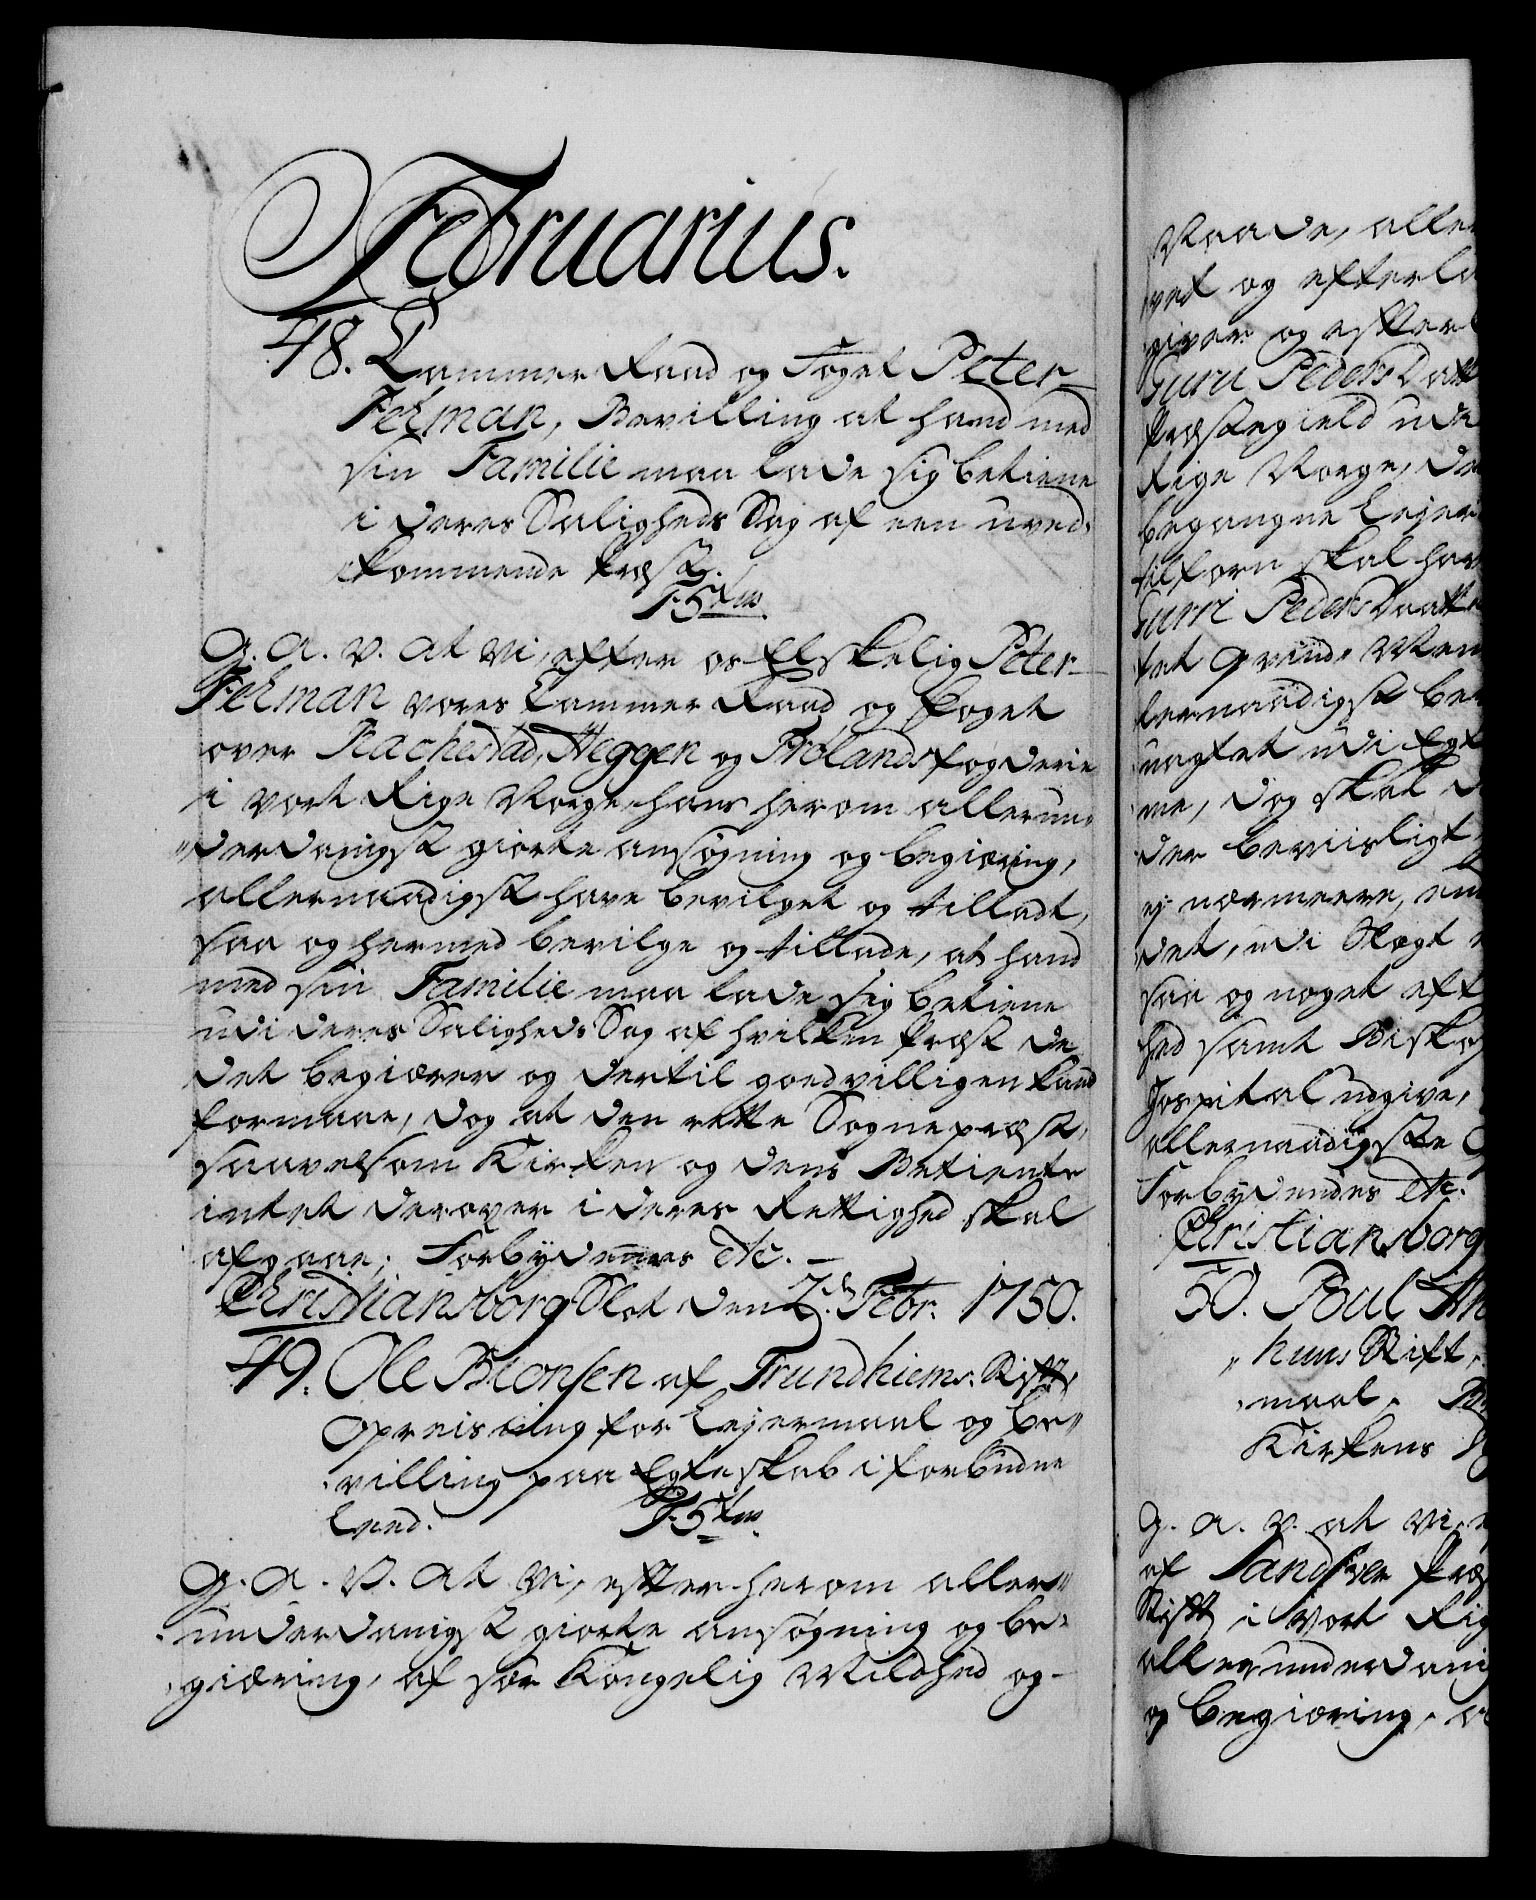 Februarius.
48. Cammer Raad og Foget Peter
Felman, Bevilling at hand med
sin Familie maa lade sig betiene
i deres Saligheds Sag af een uved-
kommende Præst.
G. A. V. at vi, efter os Elskelig Peter
Felman vores Cammer Raad og Foget
over Rachestad, Heggen og Frølands fogderie
i vort Rige Norge, hans herom allerun-
derdanigst giorte ansøgning og begiæring,
allernaadigst have bevilget og tilladt,
saa og hermed bevilge og tillade, at hand
med sin Familie maa lade sig betiene
udi deres Saligheds Sag af hvilken Præst de
det begiærer og dertil goedvilligen kand
formaae, dog at den rette Sognepræst,
saavelsom Kirken og dens Betiente
intet derover i deres Rettighed skal
afgaae; Forbydendes etc.
Christiansborg Slot den 2. Febr. 1750.
49. Ole Bionsen af Trundhiems Stift,
opreisning for Lejermaal og be-
villing paa Egteskab i forbudne
Leed.
G. A. V. at vi, efter herom aller-
underdanigst giorte ansøgning og be-
giæring, af sær Kongelig Mildhed og
Naade, aller
og efterla
giver og efter
Guru Peders Datt
Præstegield udi
Rige Norge, de
begangne Lejer
tilforn skal hav
Gurri Peders Datt
tet qvinde Men
lernaadigst be
uagtet udi Egt
me, dog skal d
der beviisligt
ej nærmere, en
det, udi Slægt
saa og noget eft
hed samt Bisko
Hospital udgive,
allernaadigste
Forbydendes etc.
Christiansborg
50. Poul An
huus Stift,
maal.
Kirkens
G. A. V. at vi,
af Sandsver Præ
Stift i vort Rig
allerunderdanig
og begiæring,